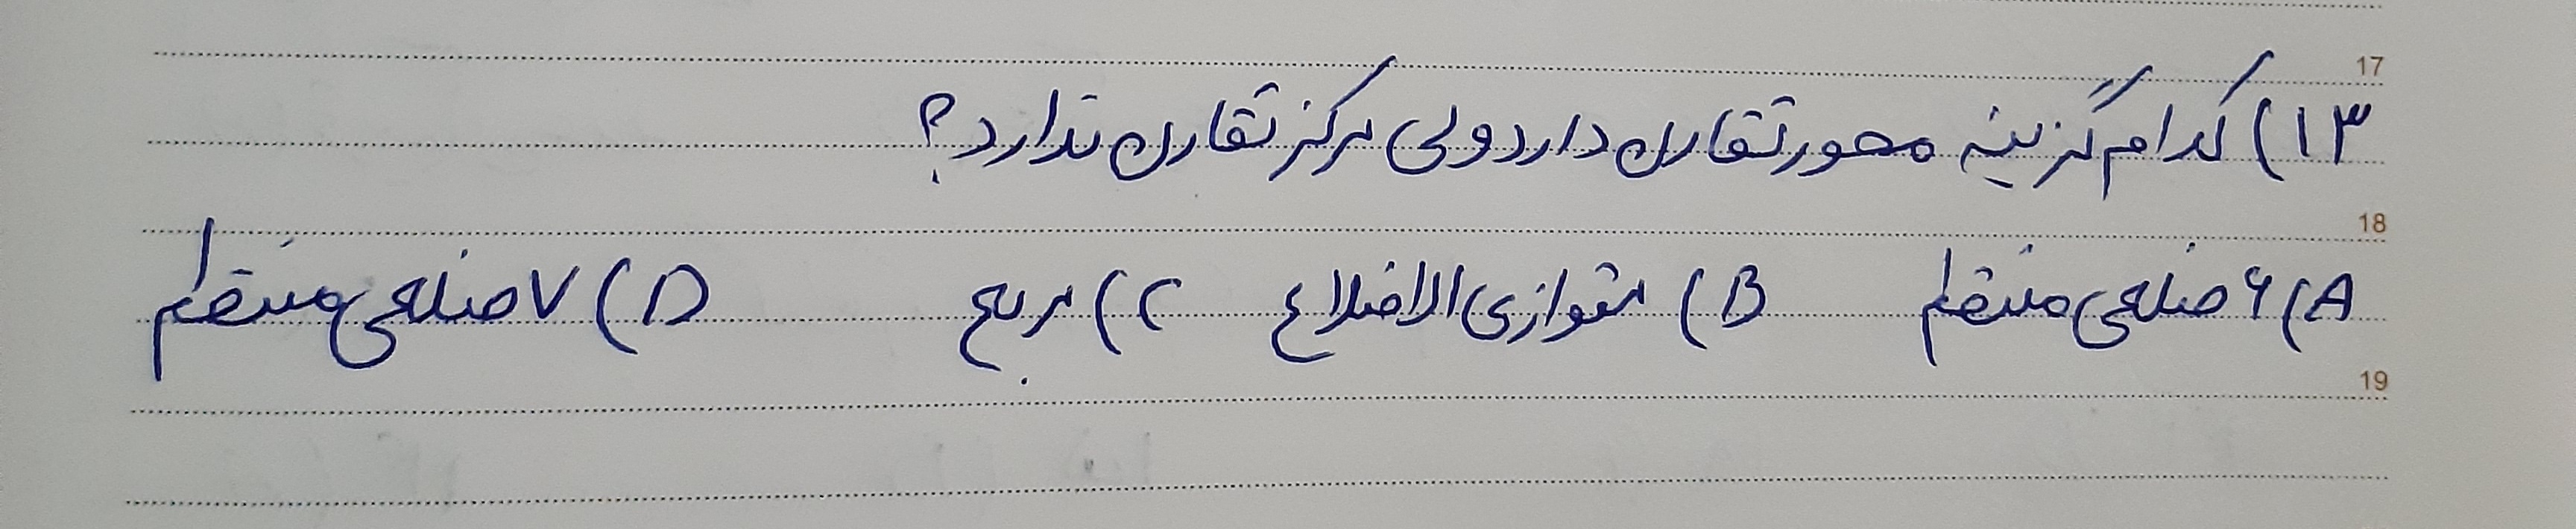 17
۱۳) کدام گزینه محور تقارن دارد ولی مرکز تقارن ندارد؟
18
A) ۶ ضلعی منتظم B) متوازی الاضلاع C) مربع D) ۷ ضلعی منتظم
19